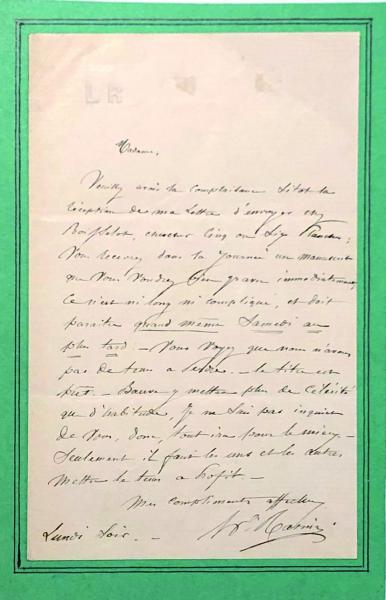 LR
Madame,
Veuillez avoir la complaisance sitot la
réception de ma lettre d'envoyer chez
Boisselot, chercher cinq ou six Planches;
Vous recevrez dans la journée un manuscrit
que Vous voudrez bien graver immédiatement,
Ce n'est ni long ni compliqué, et doit
paraitre quand même Samedi au
plus tard. – Vous voyez que nous n'avons
pas de tems à perdre. – le titre est
prêt. – y mettre plus de Célérité
que d'habitude, je ne suis pas inquiet
de Vous, donc, tout ira pour le mieux –
Seulement il faut les uns et les autres
mettre le tems à profit –
Mes compliments affectueux
Lundi Soir. –